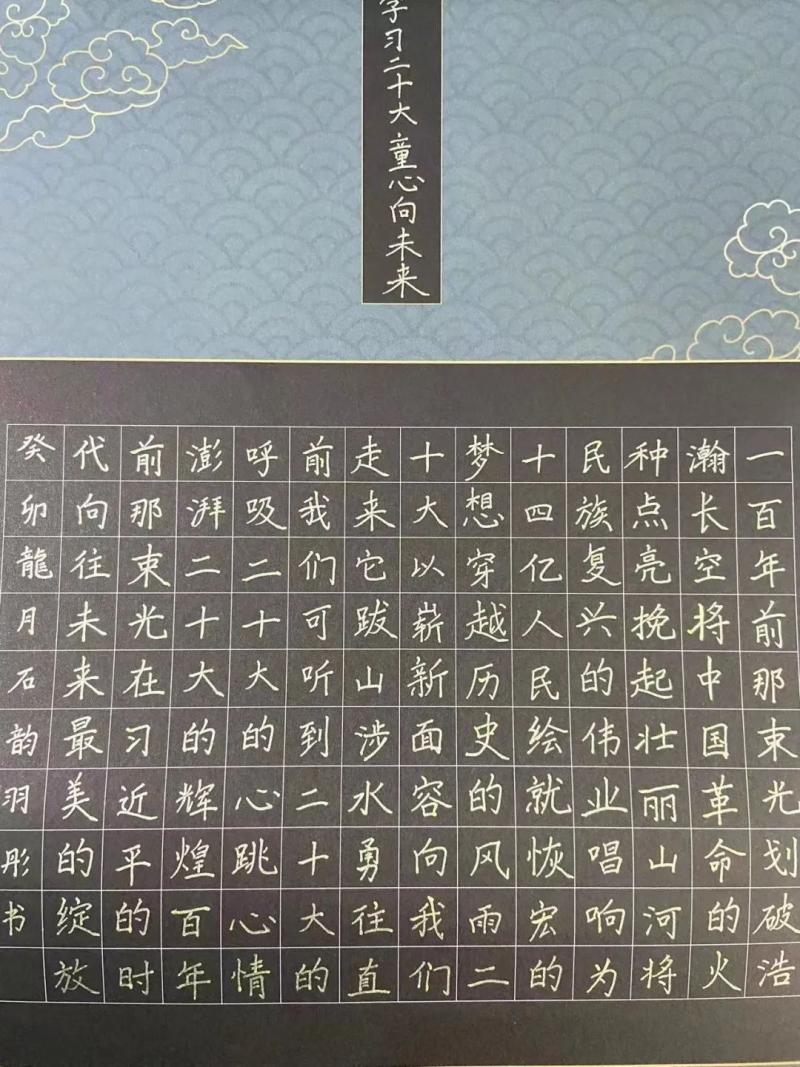 学习二十大童心向未来
一百年前那束光划破浩
瀚长空将中国革命的火
种点亮挽起壮丽山河将
民族复兴的伟业唱响为
十四亿人民绘就恢宏的
梦想穿越历史的风雨二
十大以崭新面容向我们
走来它跋山涉水勇往直
前我们可听到二十大的
呼吸二十大的心跳心情
澎湃二十大的辉煌百年
前那束光在习近平的时
代向往未来最美的绽放
癸卯龍月石韵羽彤书